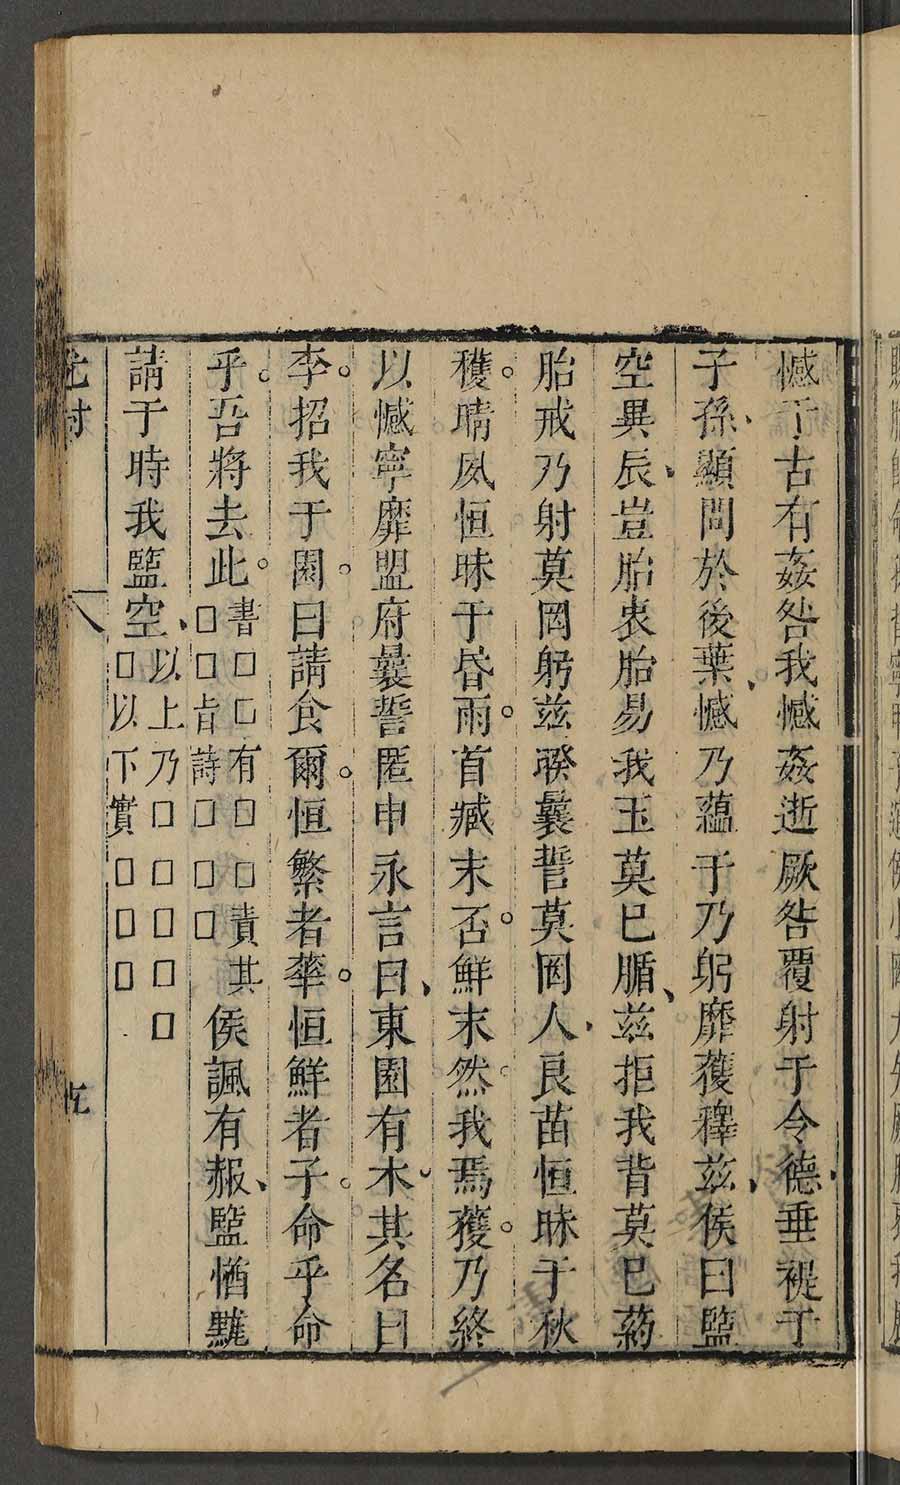 憾于古有姦咎我憾姦逝厥咎覆射于令德垂禔于
子孫顯問於後葉憾乃蘊于乃躬靡獲釋茲侯曰監
空異辰豈胎衷胎易我玉莫巳腯茲拒我背莫巳葯
胎戒乃射莫罔躬茲曩誓莫罔人良苗恒昧于秋
穫晴夙恒昧于昏雨首臧末否鮮末然我焉獲乃終
以憾寧靡盟府曩誓匿申永言曰東園有木其名曰
李招我于園曰請食爾恒繁者華恒鮮者子命乎命
乎吾將去此書□□有□□責其□□旨詩□□□侯諷有赧監惛
請于時我監空以上乃□□□□□以下實□□□